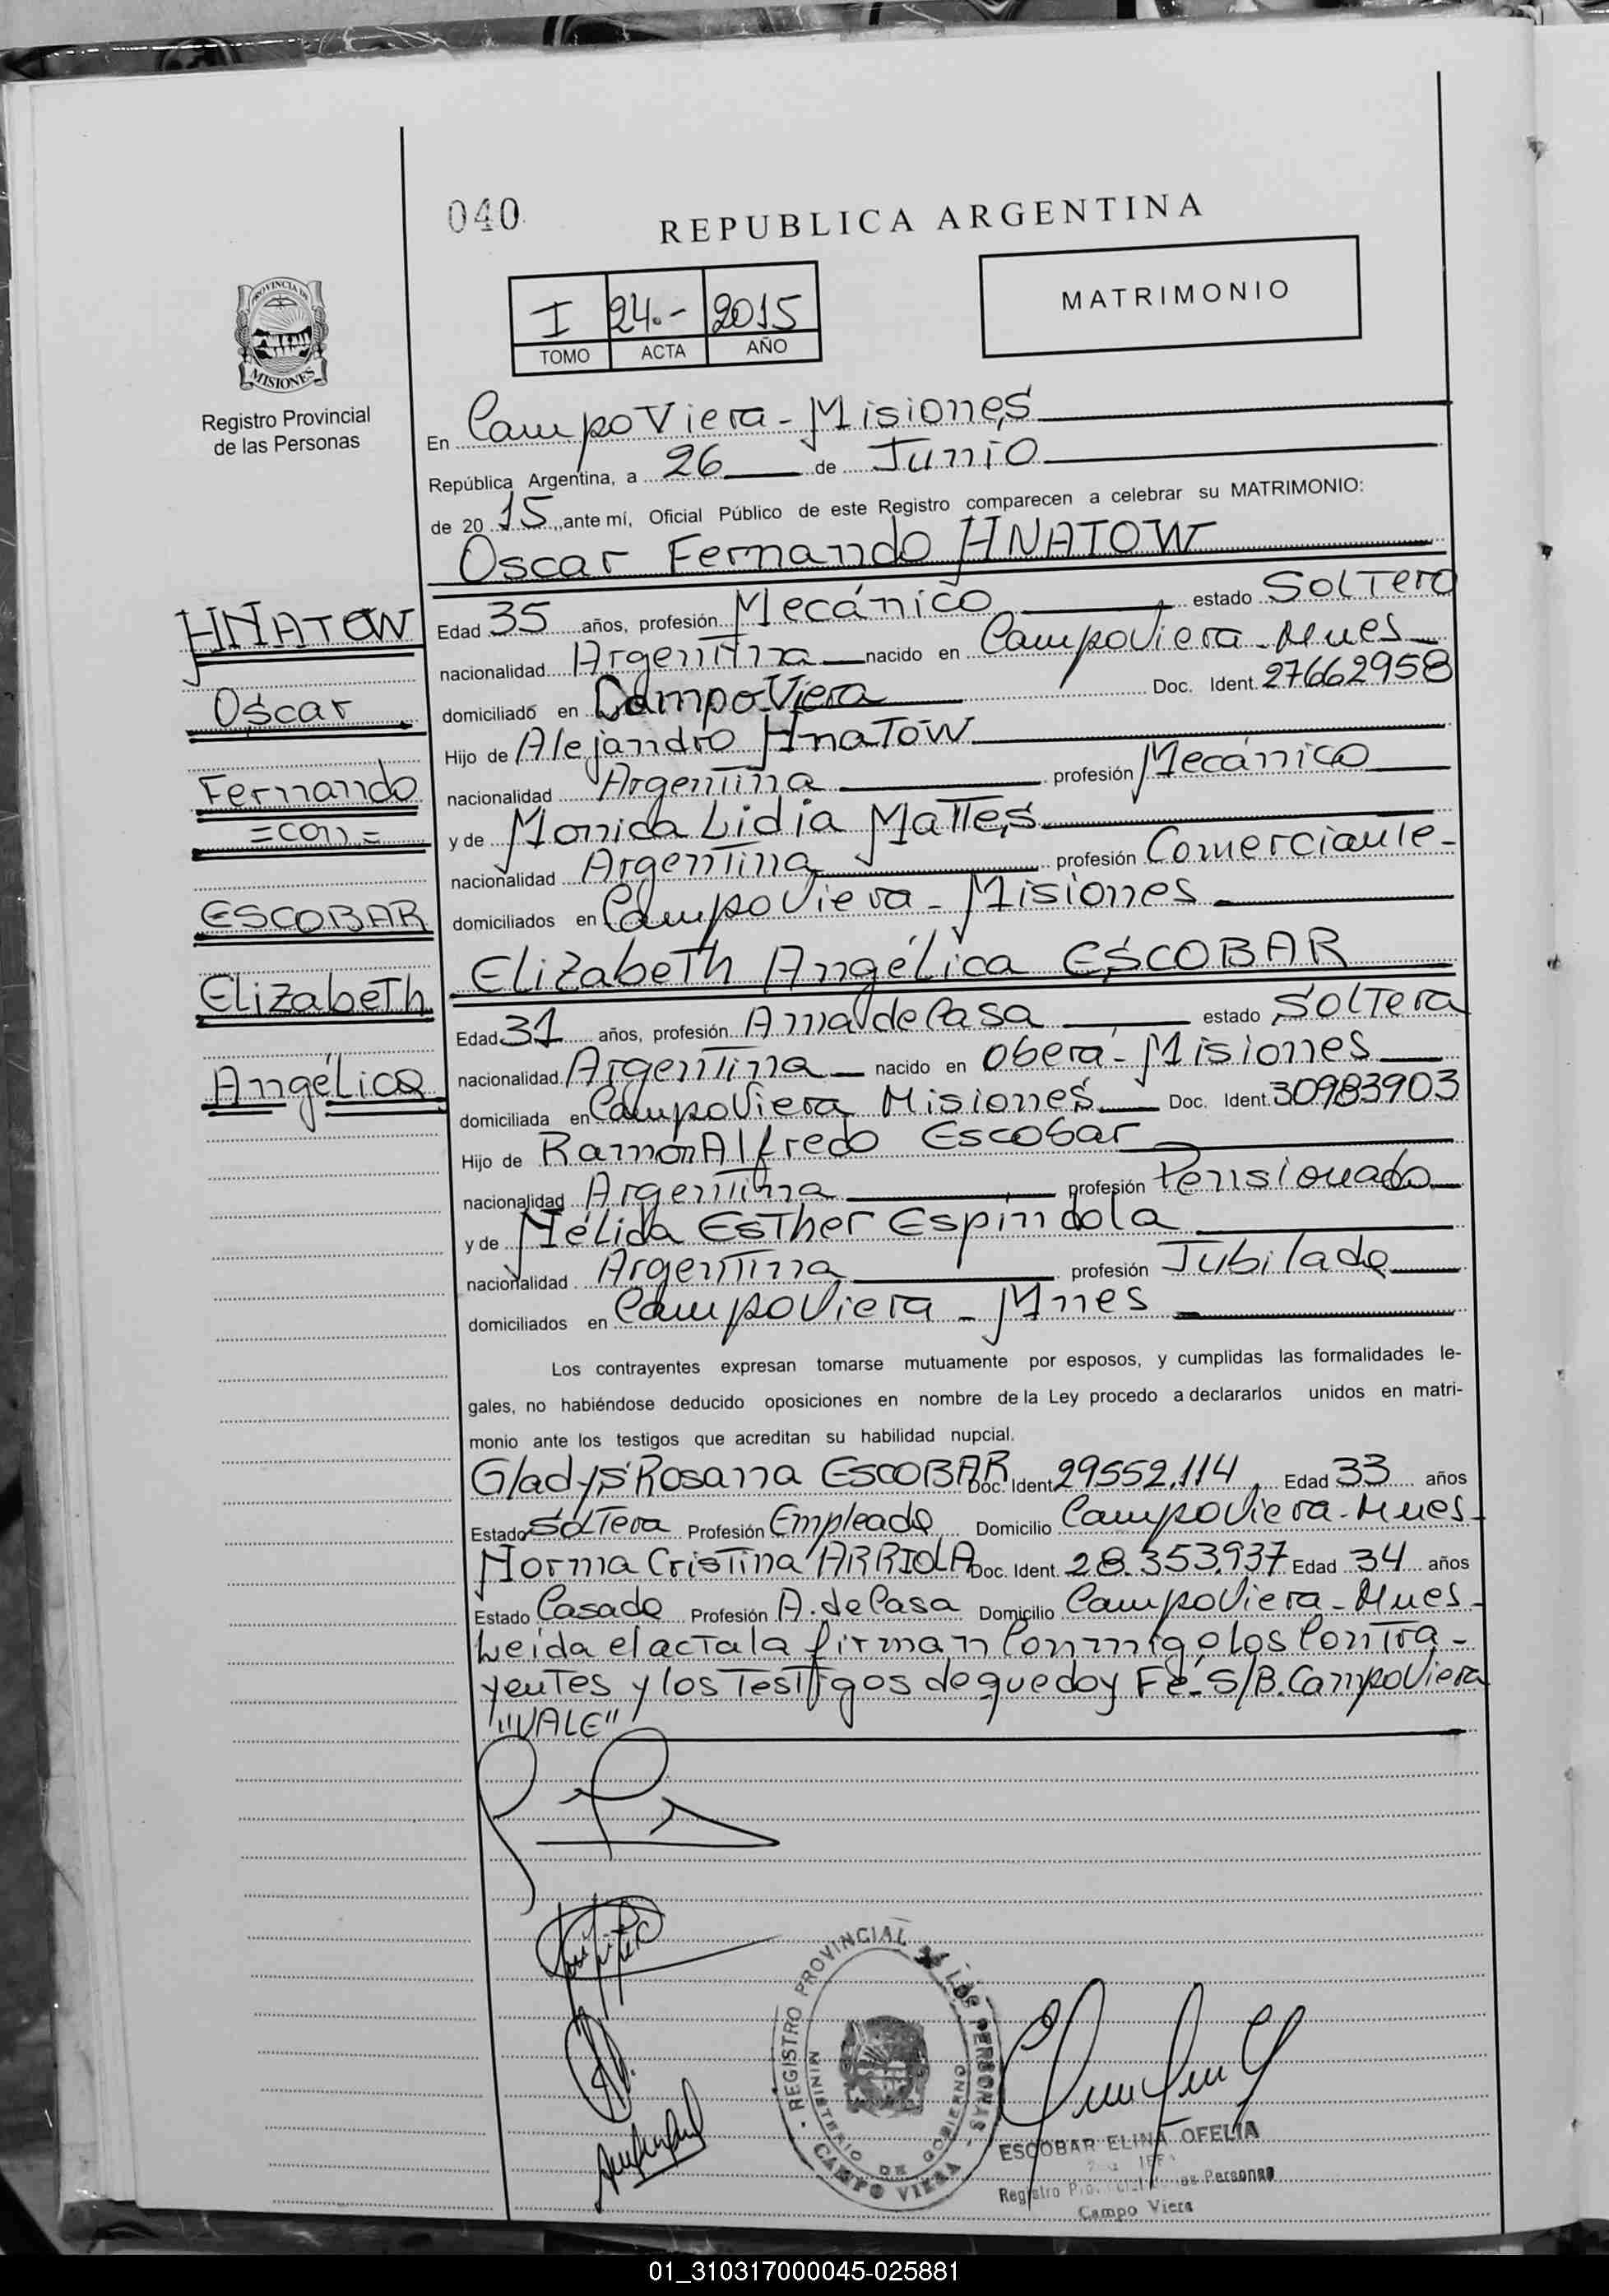 040
REPUBLICA ARGENTINA
PROVINCIA DE
MISIONES
Registro Provincial
de las Personas
I 24.- 2015
TOMO ACTA AÑO
MATRIMONIO
En Campo Viera - Misiones
República Argentina, a 26 de Junio
de 20 15, ante mí, Oficial Público de este Registro comparecen a celebrar su MATRIMONIO:
Oscar Fernando HNATOW
HNATOW
Oscar
Fernando
=con=
ESCOBAR
Elizabeth
Angélica
Edad 35 años, profesión Mecánico estado Soltero
nacionalidad Argentina nacido en Campo Viera - Mnes
domiciliado en Campo Viera Doc. Ident. 27662958
Hijo de Alejandro Hnatow
nacionalidad Argentina profesión Mecánico
y de Monica Lidia Mattes
nacionalidad Argentina profesión Comerciante -
domiciliados en Campo Viera - Misiones
Elizabeth Angélica ESCOBAR
Edad 31 años, profesión Ama de Casa estado Soltera
nacionalidad Argentina nacido en Oberá - Misiones
domiciliada en Campo Viera Misiones Doc. Ident. 30983903
Hijo de Ramón Alfredo Escobar
nacionalidad Argentina profesión Pensionado
y de Nélida Esther Espíndola
nacionalidad Argentina profesión Jubilada
domiciliados en Campo Viera - Mnes
Los contrayentes expresan tomarse mutuamente por esposos, y cumplidas las formalidades le-
gales, no habiéndose deducido oposiciones en nombre de la Ley procedo a declararlos unidos en matri-
monio ante los testigos que acreditan su habilidad nupcial.
Gladys Rosana ESCOBAR Doc. Ident 29552.114 Edad 33 años
Estado Soltera Profesión Empleada Domicilio Campo Viera - Mnes -
Norma Cristina ARRIOLA Doc. Ident. 28.353.937 Edad 34 años
Estado Casada Profesión A. de Casa Domicilio Campo Viera - Mnes -
Leida el acta la firman Conmigo los Contra-
yentes y los Testigos de que doy Fé - S/B. Campo Viera
"VALE"
REGISTRO PROVINCIAL DE LAS PERSONAS
MINISTERIO DE GOBIERNO
CAMPO VIERA
ESCOBAR ELINA OFELIA
Registro Provincial de las Personas
Campo Viera
01_310317000045-025881